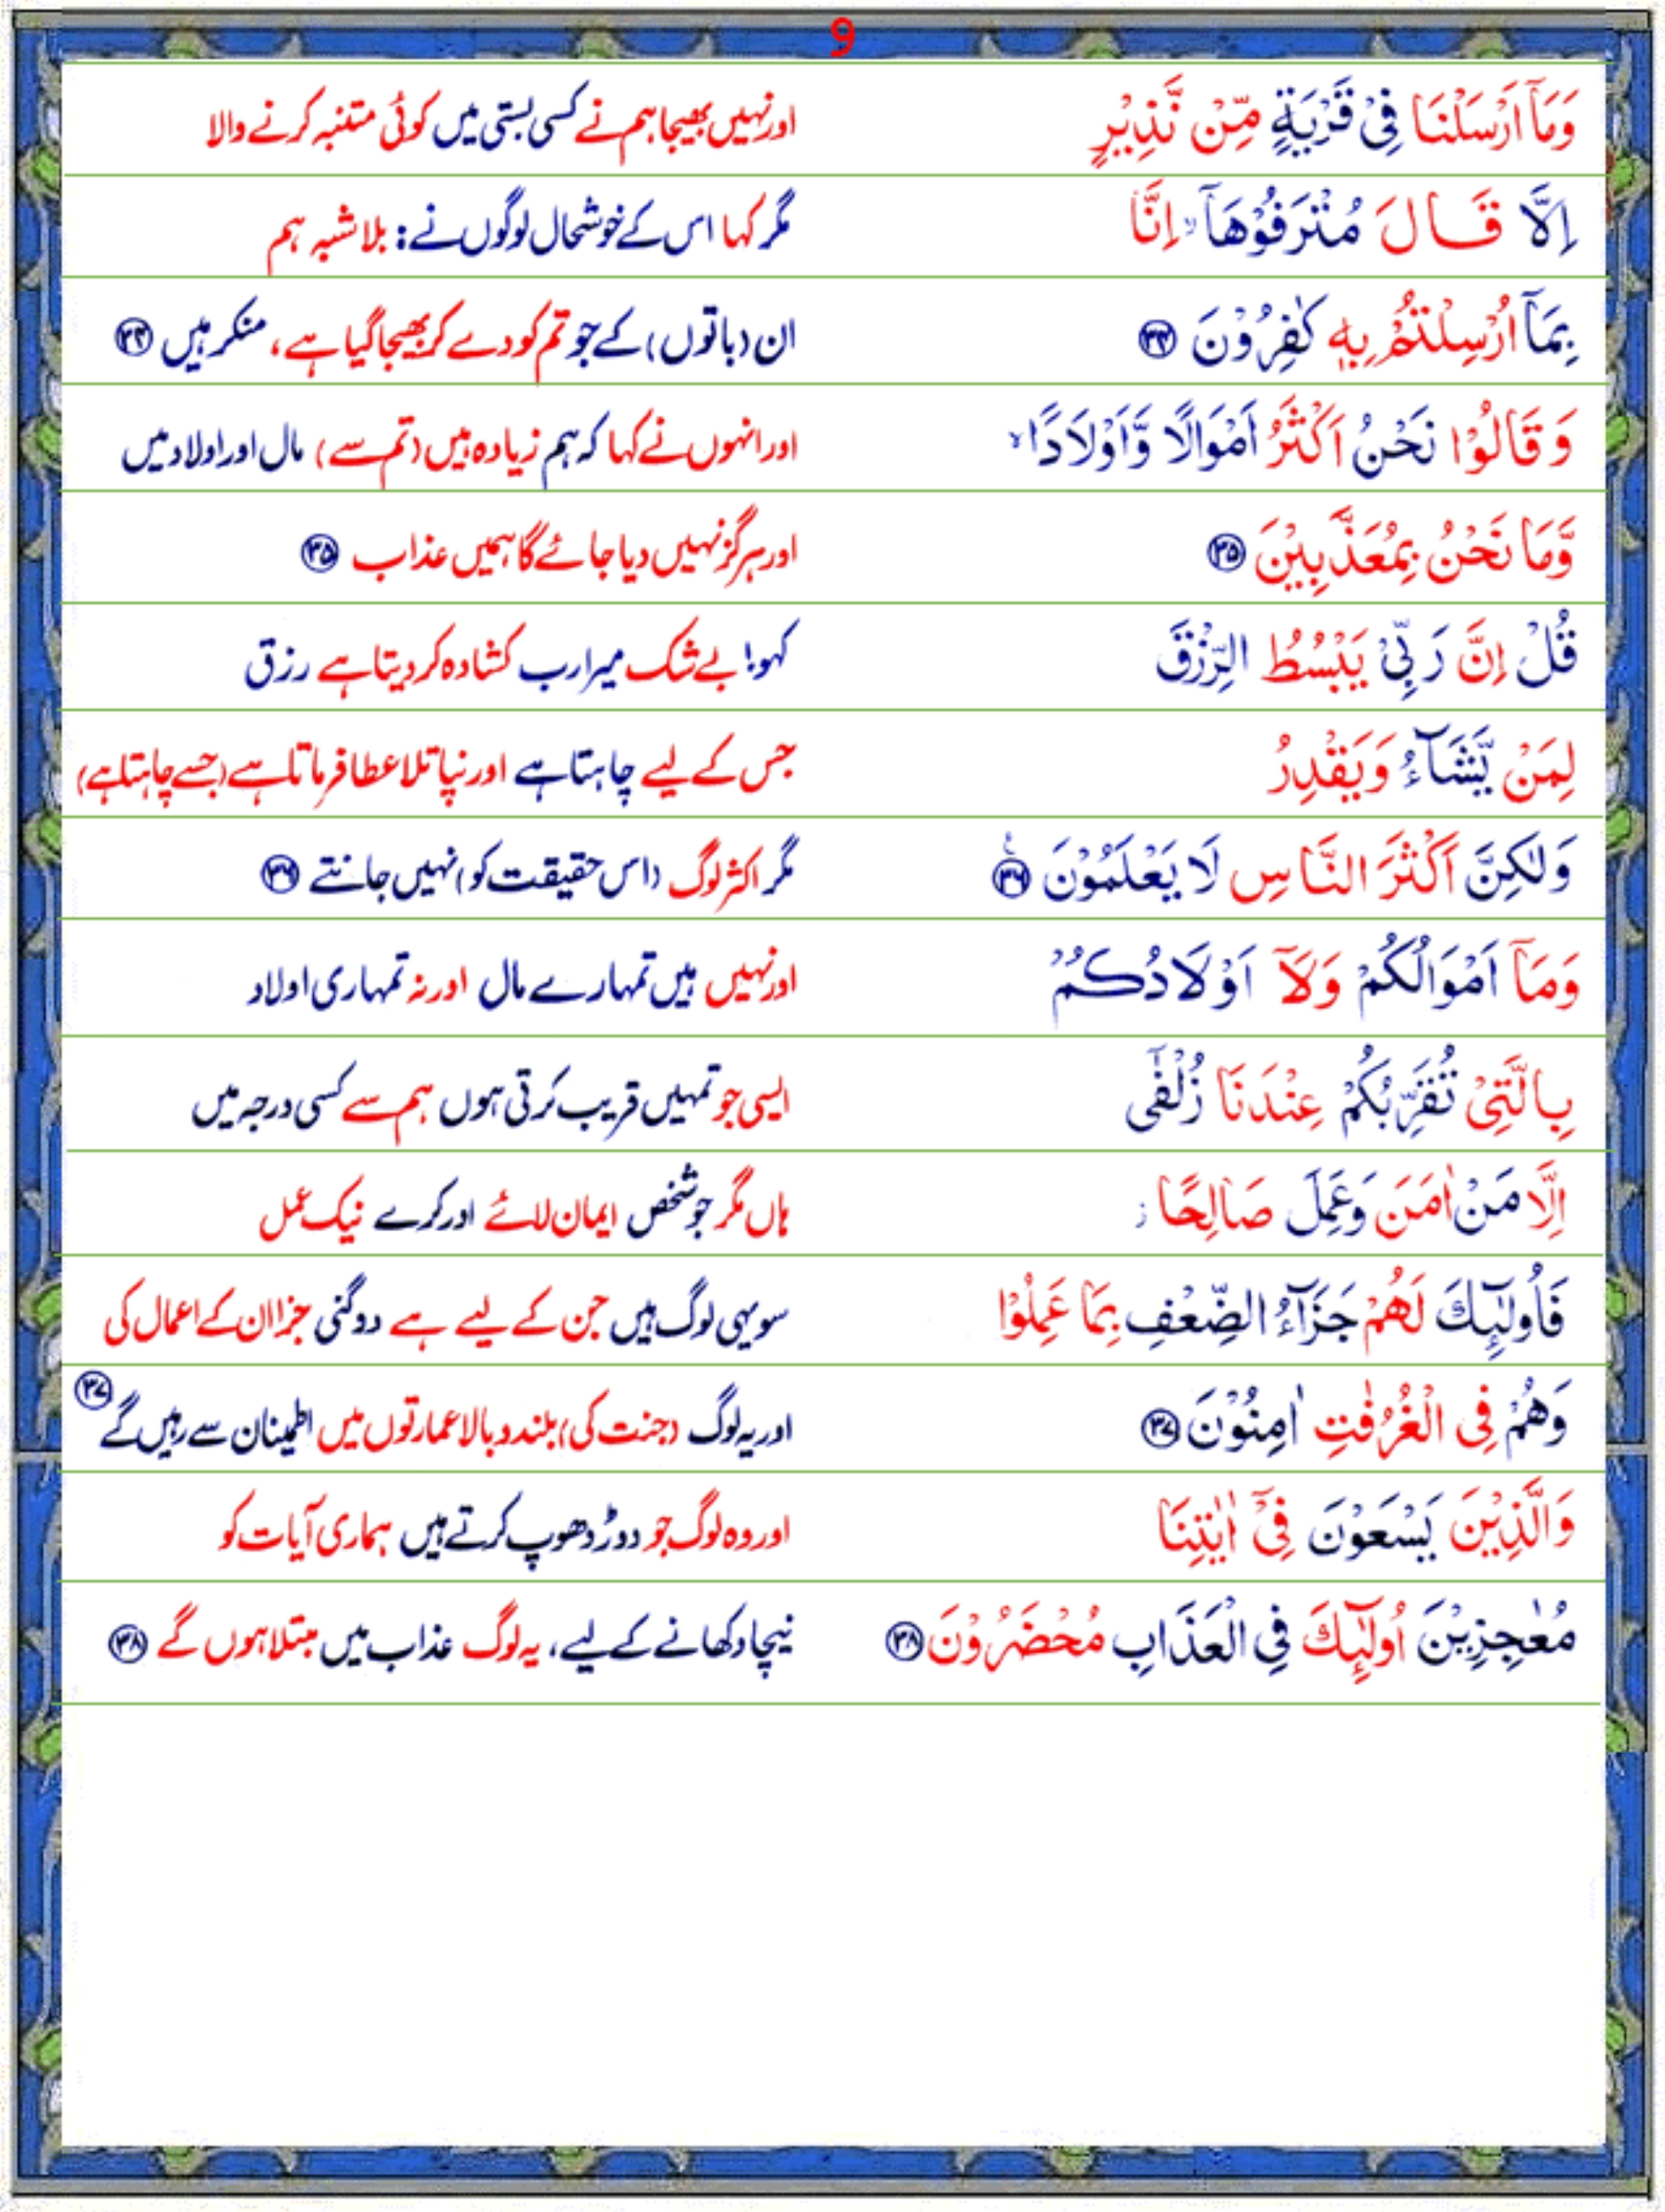 9
وَمَآ اَرْسَلْنَا فِیْ قَرْیَةٍ مِّنْ نَّذِیْرٍ اور نہیں بھیجا ہم نے کسی بستی میں کوئی متنبہ کرنے والا
اِلَّا قَالَ مُتْرَفُوْهَآ ۙ اِنَّا مگر کہا اس کے خوشحال لوگوں نے: بلاشبہ ہم
بِمَآ اُرْسِلْتُمْ بِهٖ كٰفِرُوْنَ ﴿۳۴﴾ ان (باتوں) کے جو تم کو دے کر بھیجا گیا ہے، منکر ہیں ﴿۳۴﴾
وَ قَالُوْا نَحْنُ اَكْثَرُ اَمْوَالًا وَّاَوْلَادًا ۙ اور انہوں نے کہا کہ ہم زیادہ ہیں (تم سے) مال اور اولاد میں
وَّمَا نَحْنُ بِمُعَذَّبِیْنَ ﴿۳۵﴾ اور ہرگز نہیں دیا جائے گا ہمیں عذاب ﴿۳۵﴾
قُلْ اِنَّ رَبِّیْ یَبْسُطُ الرِّزْقَ کہو! بے شک میرا رب کشادہ کر دیتا ہے رزق
لِمَنْ یَّشَآءُ وَیَقْدِرُ جس کے لیے چاہتا ہے اور نپا تلا عطا فرماتا ہے (جسے چاہتا ہے)
وَلٰكِنَّ اَكْثَرَ النَّاسِ لَا یَعْلَمُوْنَ ﴿۳۶﴾ مگر اکثر لوگ (اس حقیقت کو) نہیں جانتے ﴿۳۶﴾
وَمَآ اَمْوَالُكُمْ وَلَآ اَوْلَادُكُمْ اور نہیں ہیں تمہارے مال اور نہ تمہاری اولاد
بِالَّتِیْ تُقَرِّبُكُمْ عِنْدَنَا زُلْفٰٓی ایسی جو تمہیں قریب کرتی ہوں ہم سے کسی درجہ میں
اِلَّا مَنْ اٰمَنَ وَعَمِلَ صَالِحًا ز ہاں مگر جو شخص ایمان لائے اور کرے نیک عمل
فَاُولٰٓىِٕكَ لَهُمْ جَزَآءُ الضِّعْفِ بِمَا عَمِلُوْا سو یہی لوگ ہیں جن کے لیے ہے دوگنی جزا ان کے اعمال کی
وَهُمْ فِی الْغُرُفٰتِ اٰمِنُوْنَ ﴿۳۷﴾ اور یہ لوگ (جنت کی) بلند و بالا عمارتوں میں اطمینان سے رہیں گے ﴿۳۷﴾
وَالَّذِیْنَ یَسْعَوْنَ فِیْٓ اٰیٰتِنَا اور وہ لوگ جو دوڑ دھوپ کرتے ہیں ہماری آیات کو
مُعٰجِزِیْنَ اُولٰٓىِٕكَ فِی الْعَذَابِ مُحْضَرُوْنَ ﴿۳۸﴾ نیچا دکھانے کے لیے، یہ لوگ عذاب میں مبتلا ہوں گے ﴿۳۸﴾